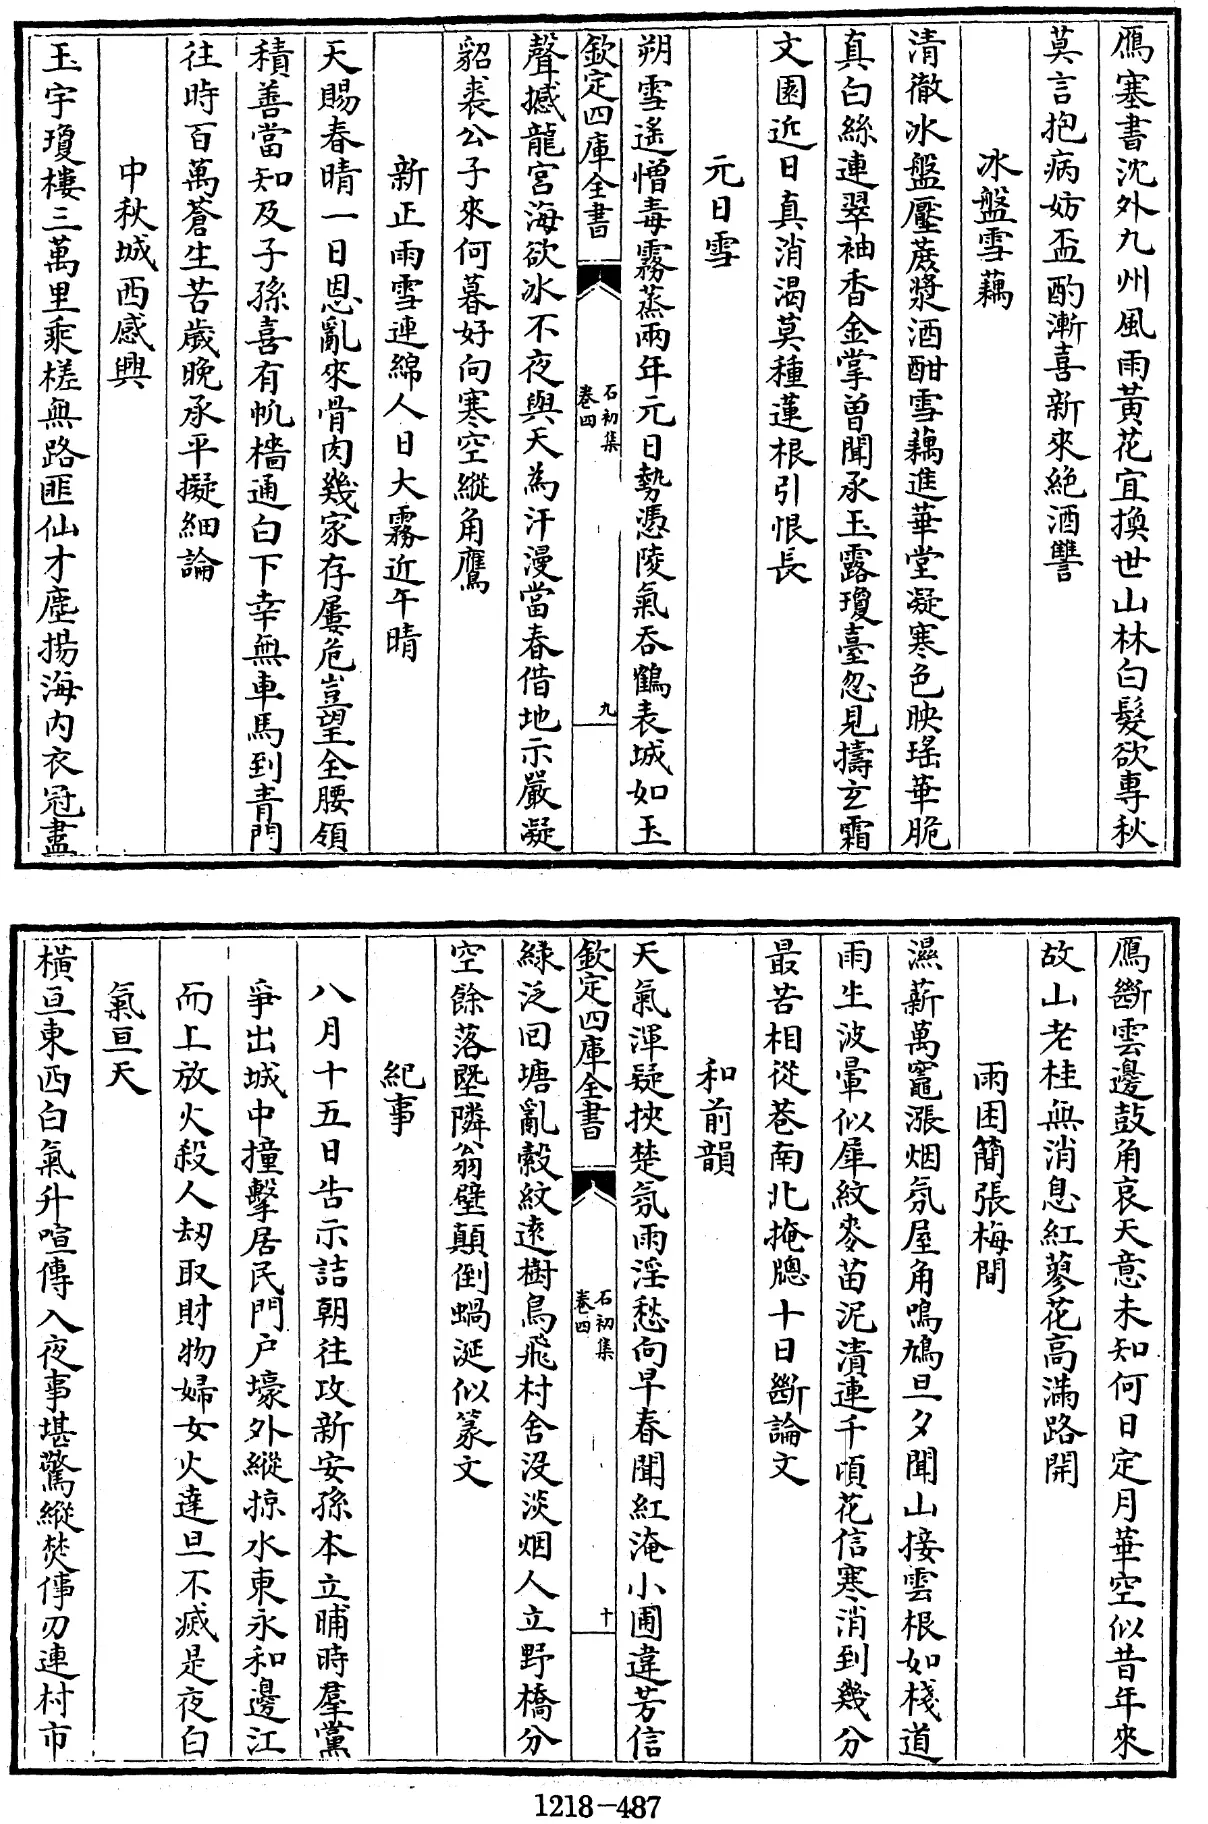 鴈塞書沈外九州風雨黃花宜換世山林白髮欲專秋
莫言抱病妨盃酌漸喜新來絶酒讐
氷盤雪藕
清徹氷盤壓蔗漿酒酣雪藕進華堂凝寒色映瑤華脆
真白絲連翠袖香金掌曾聞承玉露瓊臺忽見擣玄霜
文園近日真消渴莫種蓮根引恨長
元日雪
朔雪遙憎毒霧蒸兩年元日勢憑陵氣吞鶴表城如玉
欽定四庫全書
石初集
卷四
九
聲撼龍宮海欲氷不夜與天為汗漫當春借地示嚴凝
貂裘公子來何暮好向寒空縱角鷹
新正雨雪連綿人日大霧近午晴
天賜春晴一日恩亂來骨肉幾家存屢危豈望全腰領
積善當知及子孫喜有帆檣通白下幸無車馬到青門
往時百萬蒼生苦歲晚承平擬細論
中秋城西感興
玉宇瓊樓三萬里乘槎無路匪仙才塵揚海内衣冠盡
鴈斷雲邊鼓角哀天意未知何日定月華空似昔年來
故山老桂無消息紅蓼花高滿路開
雨困簡張梅間
濕薪萬竈漲烟氛屋角鳴鳩旦夕聞山接雲根如棧道
雨生波暈似犀紋麥苗泥漬連千頃花信寒消到幾分
最苦相從巷南北掩牕十日斷論文
和前韻
天氣渾疑挾楚氛雨淫愁向早春聞紅淹小圃違芳信
欽定四庫全書
石初集
卷四
十
緑泛回塘亂縠紋遠樹鳥飛村舍没淡烟人立野橋分
空餘落墍隣翁壁顛倒蝸涎似篆文
紀事
八月十五日告示詰朝往攻新安孫本立晡時羣黨
爭出城中撞擊居民門户壕外縱掠水東永和邊江
而上放火殺人刼取財物婦女火達旦不滅是夜白
氣亘天
橫亘東西白氣升喧傳入夜事堪驚縱焚倳刃連村市
1218-487